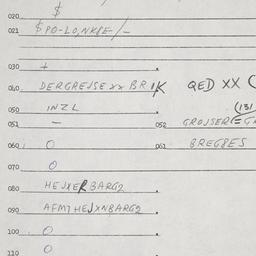 020 $
021 $ PO-LO,NK/E/-
030 +
040 DERGREJSE XX BR IK QED XX (
050 INZL (131
051 - 052 GROJSER
060 0 061 BREG8ES
070 0
080 HEJXERBARG2
090 AFM7 HEJXNBARG2
100 0
110 0